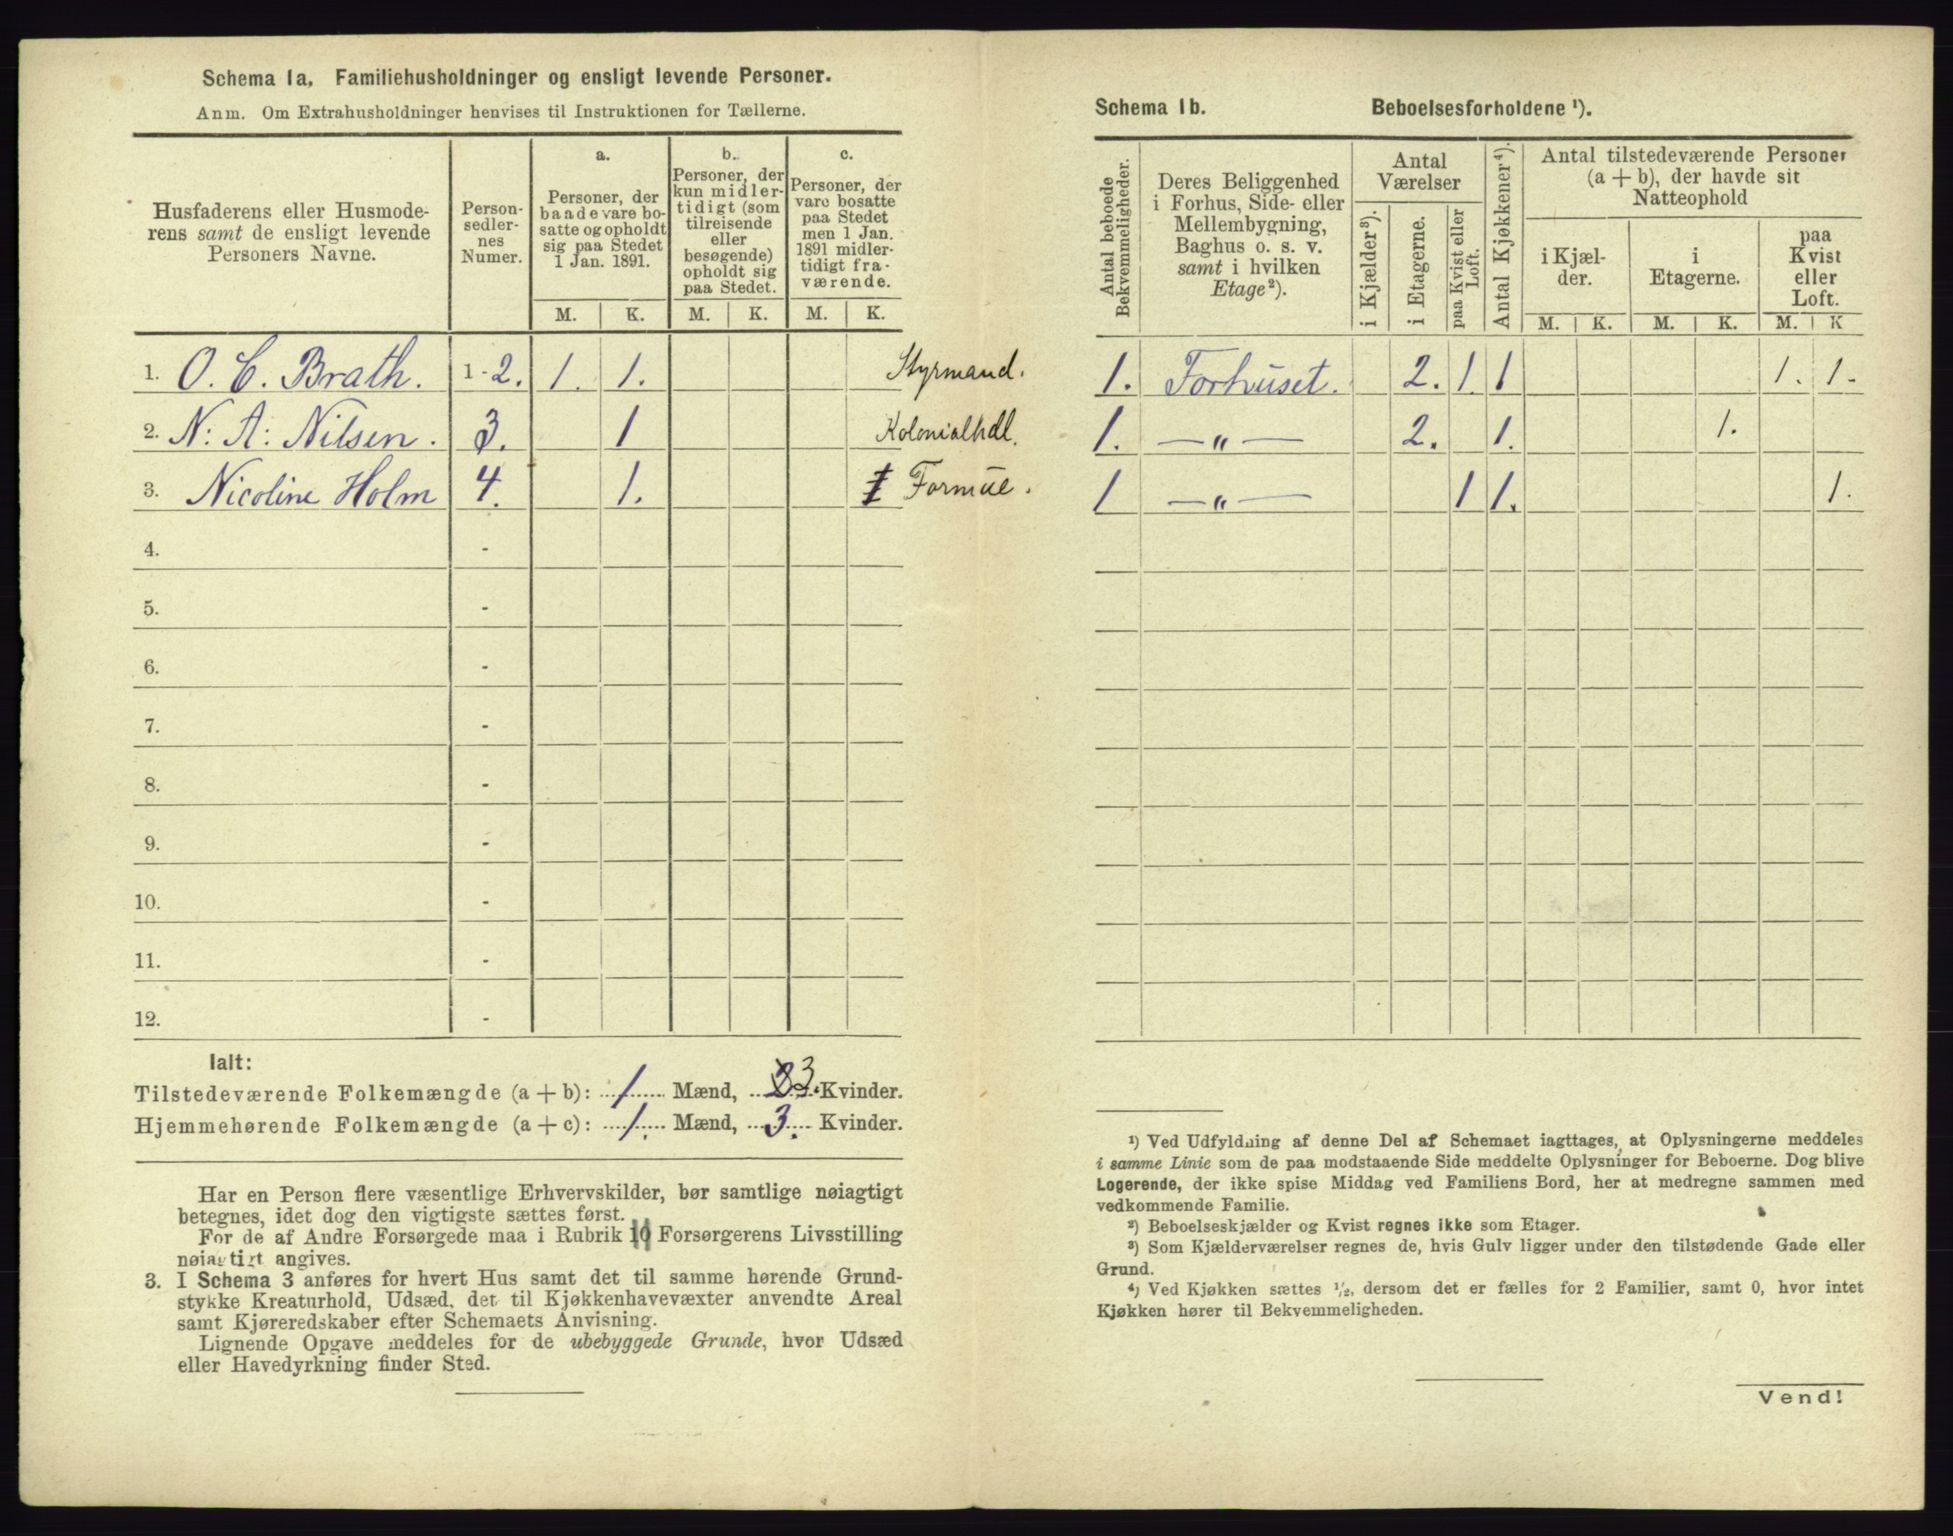 Schema 1a, Familiehusholdninger og ensligt levende Personer.
Anm. Om Extrahusholdninger henvises til Instruktionen for Tællerne.
Husfaderens eller Husmode-
rens samt de ensligt levende
Personers Navne.
Person-
sedler-
nes
Numer.
a.
Personer, der
baade vare bo-
satte og opholdt
sig paa Stedet
1 Jan. 1891.
b.
Personer, der
kun midler-
tidigt (som
tilreisende
eller
besøgende)
opholdt sig
paa Stedet.
c.
Personer, der
vare bosatte
paa Stedet
men 1 Jan.
1891 midler-
tidigt fra-
værende.
M. K. M. K. M. K.
1. O. C. Brath. 1-2. 1. 1. Styrmand.
2. N: A: Nilsen. 3. 1 Kolonialhdl.
3. Nicoline Holm 4. 1. Formue.
4. -
5. -
6. -
7. -
8. -
9. -
10. -
11. -
12. -
Ialt:
Tilstedeværende Folkemængde (a + b): 1 Mænd, 3. Kvinder.
Hjemmehørende Folkemængde (a + c): 1. Mænd, 3. Kvinder.
Har en Person flere væsentlige Erhvervskilder, bør samtlige nøiagtigt
betegnes, idet dog den vigtigste sættes først.
For de af Andre Forsørgede maa i Rubrik 10 Forsørgerens Livsstilling
nøiagtigt angives.
3. I Schema 3 anføres for hvert Hus samt det til samme hørende Grund-
stykke Kreaturhold, Udsæd, det til Kjøkkenhavevæxter anvendte Areal
samt Kjøreredskaber efter Schemaets Anvisning.
Lignende Opgave meddeles for de ubebyggede Grunde, hvor Udsæd
eller Havedyrkning finder Sted.
Schema 1b. Beboelsesforholdene ¹).
Antal beboede
Bekvemmeligheder.
Deres Beliggenhed
i Forhus, Side- eller
Mellembygning,
Baghus o. s. v.
samt i hvilken
Etage²).
Antal
Værelser
i Kjælder³).
i Etagerne.
paa Kvist eller
Loft.
Antal Kjøkkener⁴).
Antal tilstedeværende Personer
(a + b), der havde sit
Natteophold
i Kjæl-
der.
i
Etagerne.
paa
Kvist
eller
Loft.
M. K. M. K. M. K
1. Forhuset. 2. 1. 1 1. 1.
1. — „ — 2. 1. 1.
1 — „ — 1 1. 1.
¹) Ved Udfyldning af denne Del af Schemaet iagttages, at Oplysningerne meddeles
i samme Linie som de paa modstaaende Side meddelte Oplysninger for Beboerne. Dog blive
Logerende, der ikke spise Middag ved Familiens Bord, her at medregne sammen med
vedkommende Familie.
²) Beboelseskjælder og Kvist regnes ikke som Etager.
³) Som Kjælderværelser regnes de, hvis Gulv ligger under den tilstødende Gade eller
Grund.
⁴) Ved Kjøkken sættes ½, dersom det er fælles for 2 Familier, samt 0, hvor intet
Kjøkken hører til Bekvemmeligheden.
Vend!